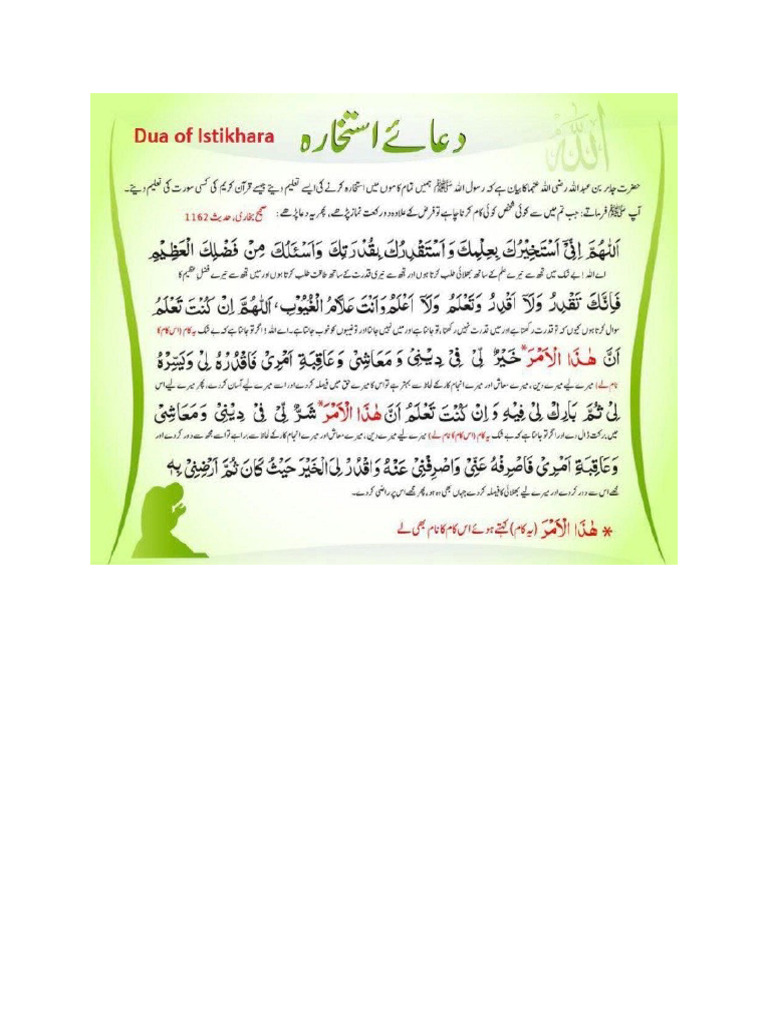 Dua of Istikhara
دعائے استخارہ
الله
حضرت جابر بن عبداللہ رضی اللہ عنہما کا بیان ہے کہ رسول اللہ ﷺ ہمیں تمام کاموں میں استخارہ کرنے کی ایسے تعلیم دیتے جیسے قرآن کریم کی کسی سورت کی تعلیم دیتے۔
آپ ﷺ فرماتے: جب تم میں سے کوئی شخص کوئی کام کرنا چاہے تو فرض کے علاوہ دو رکعت نماز پڑھے، پھر یہ دعا پڑھے: صحیح بخاری، حدیث 1162
اَللّٰهُمَّ اِنِّیْٓ اَسْتَخِیْرُكَ بِعِلْمِكَ وَ اَسْتَقْدِرُكَ بِقُدْرَتِكَ وَ اَسْئَلُكَ مِنْ فَضْلِكَ الْعَظِیْمِ
اے اللہ! بے شک میں تجھ سے تیرے علم کے ساتھ بھلائی طلب کرتا ہوں اور تجھ سے تیری قدرت کے ساتھ طاقت طلب کرتا ہوں اور میں تجھ سے تیرے فضل عظیم کا
فَاِنَّكَ تَقْدِرُ وَلَآ اَقْدِرُ وَتَعْلَمُ وَلَآ اَعْلَمُ وَاَنْتَ عَلَّامُ الْغُیُوْبِ، اَللّٰهُمَّ اِنْ كُنْتَ تَعْلَمُ
سوال کرتا ہوں کیوں کہ تو قدرت رکھتا ہے اور میں قدرت نہیں رکھتا، تو جانتا ہے اور میں نہیں جانتا اور تو غیبوں کو خوب جانتا ہے۔ اے اللہ! اگر تو جانتا ہے کہ بے شک یہ کام (اس کام کا
اَنَّ هٰذَا الْاَمْرَ* خَیْرٌ لِّیْ فِیْ دِیْنِیْ وَ مَعَاشِیْ وَ عَاقِبَةِ اَمْرِیْ فَاقْدُرْهُ لِیْ وَ یَسِّرْهُ
نام لے) میرے لیے میرے دین، میرے معاش اور میرے انجام کار کے لحاظ سے بہتر ہے تو اس کا میرے حق میں فیصلہ کر دے اور اسے میرے لیے آسان کر دے، پھر میرے لیے اس
لِیْ ثُمَّ بَارِكْ لِیْ فِیْهِ وَ اِنْ كُنْتَ تَعْلَمُ اَنَّ هٰذَا الْاَمْرَ* شَرٌّ لِّیْ فِیْ دِیْنِیْ وَ مَعَاشِیْ
میں برکت ڈال دے اور اگر تو جانتا ہے کہ بے شک یہ کام (اس کام کا نام لے) میرے لیے میرے دین، میرے معاش اور میرے انجام کار کے لحاظ سے برا ہے تو اسے مجھ سے دور کر دے اور
وَ عَاقِبَةِ اَمْرِیْ فَاصْرِفْهُ عَنِّیْ وَ اصْرِفْنِیْ عَنْهُ وَ اقْدُرْ لِیَ الْخَیْرَ حَیْثُ كَانَ ثُمَّ اَرْضِنِیْ بِهٖ
مجھے اس سے دور کر دے اور میرے لیے بھلائی کا فیصلہ کر دے جہاں بھی وہ ہو، پھر مجھے اس پر راضی کر دے۔
* هٰذَا الْاَمْرَ (یہ کام) کہتے ہوئے اس کام کا نام بھی لے